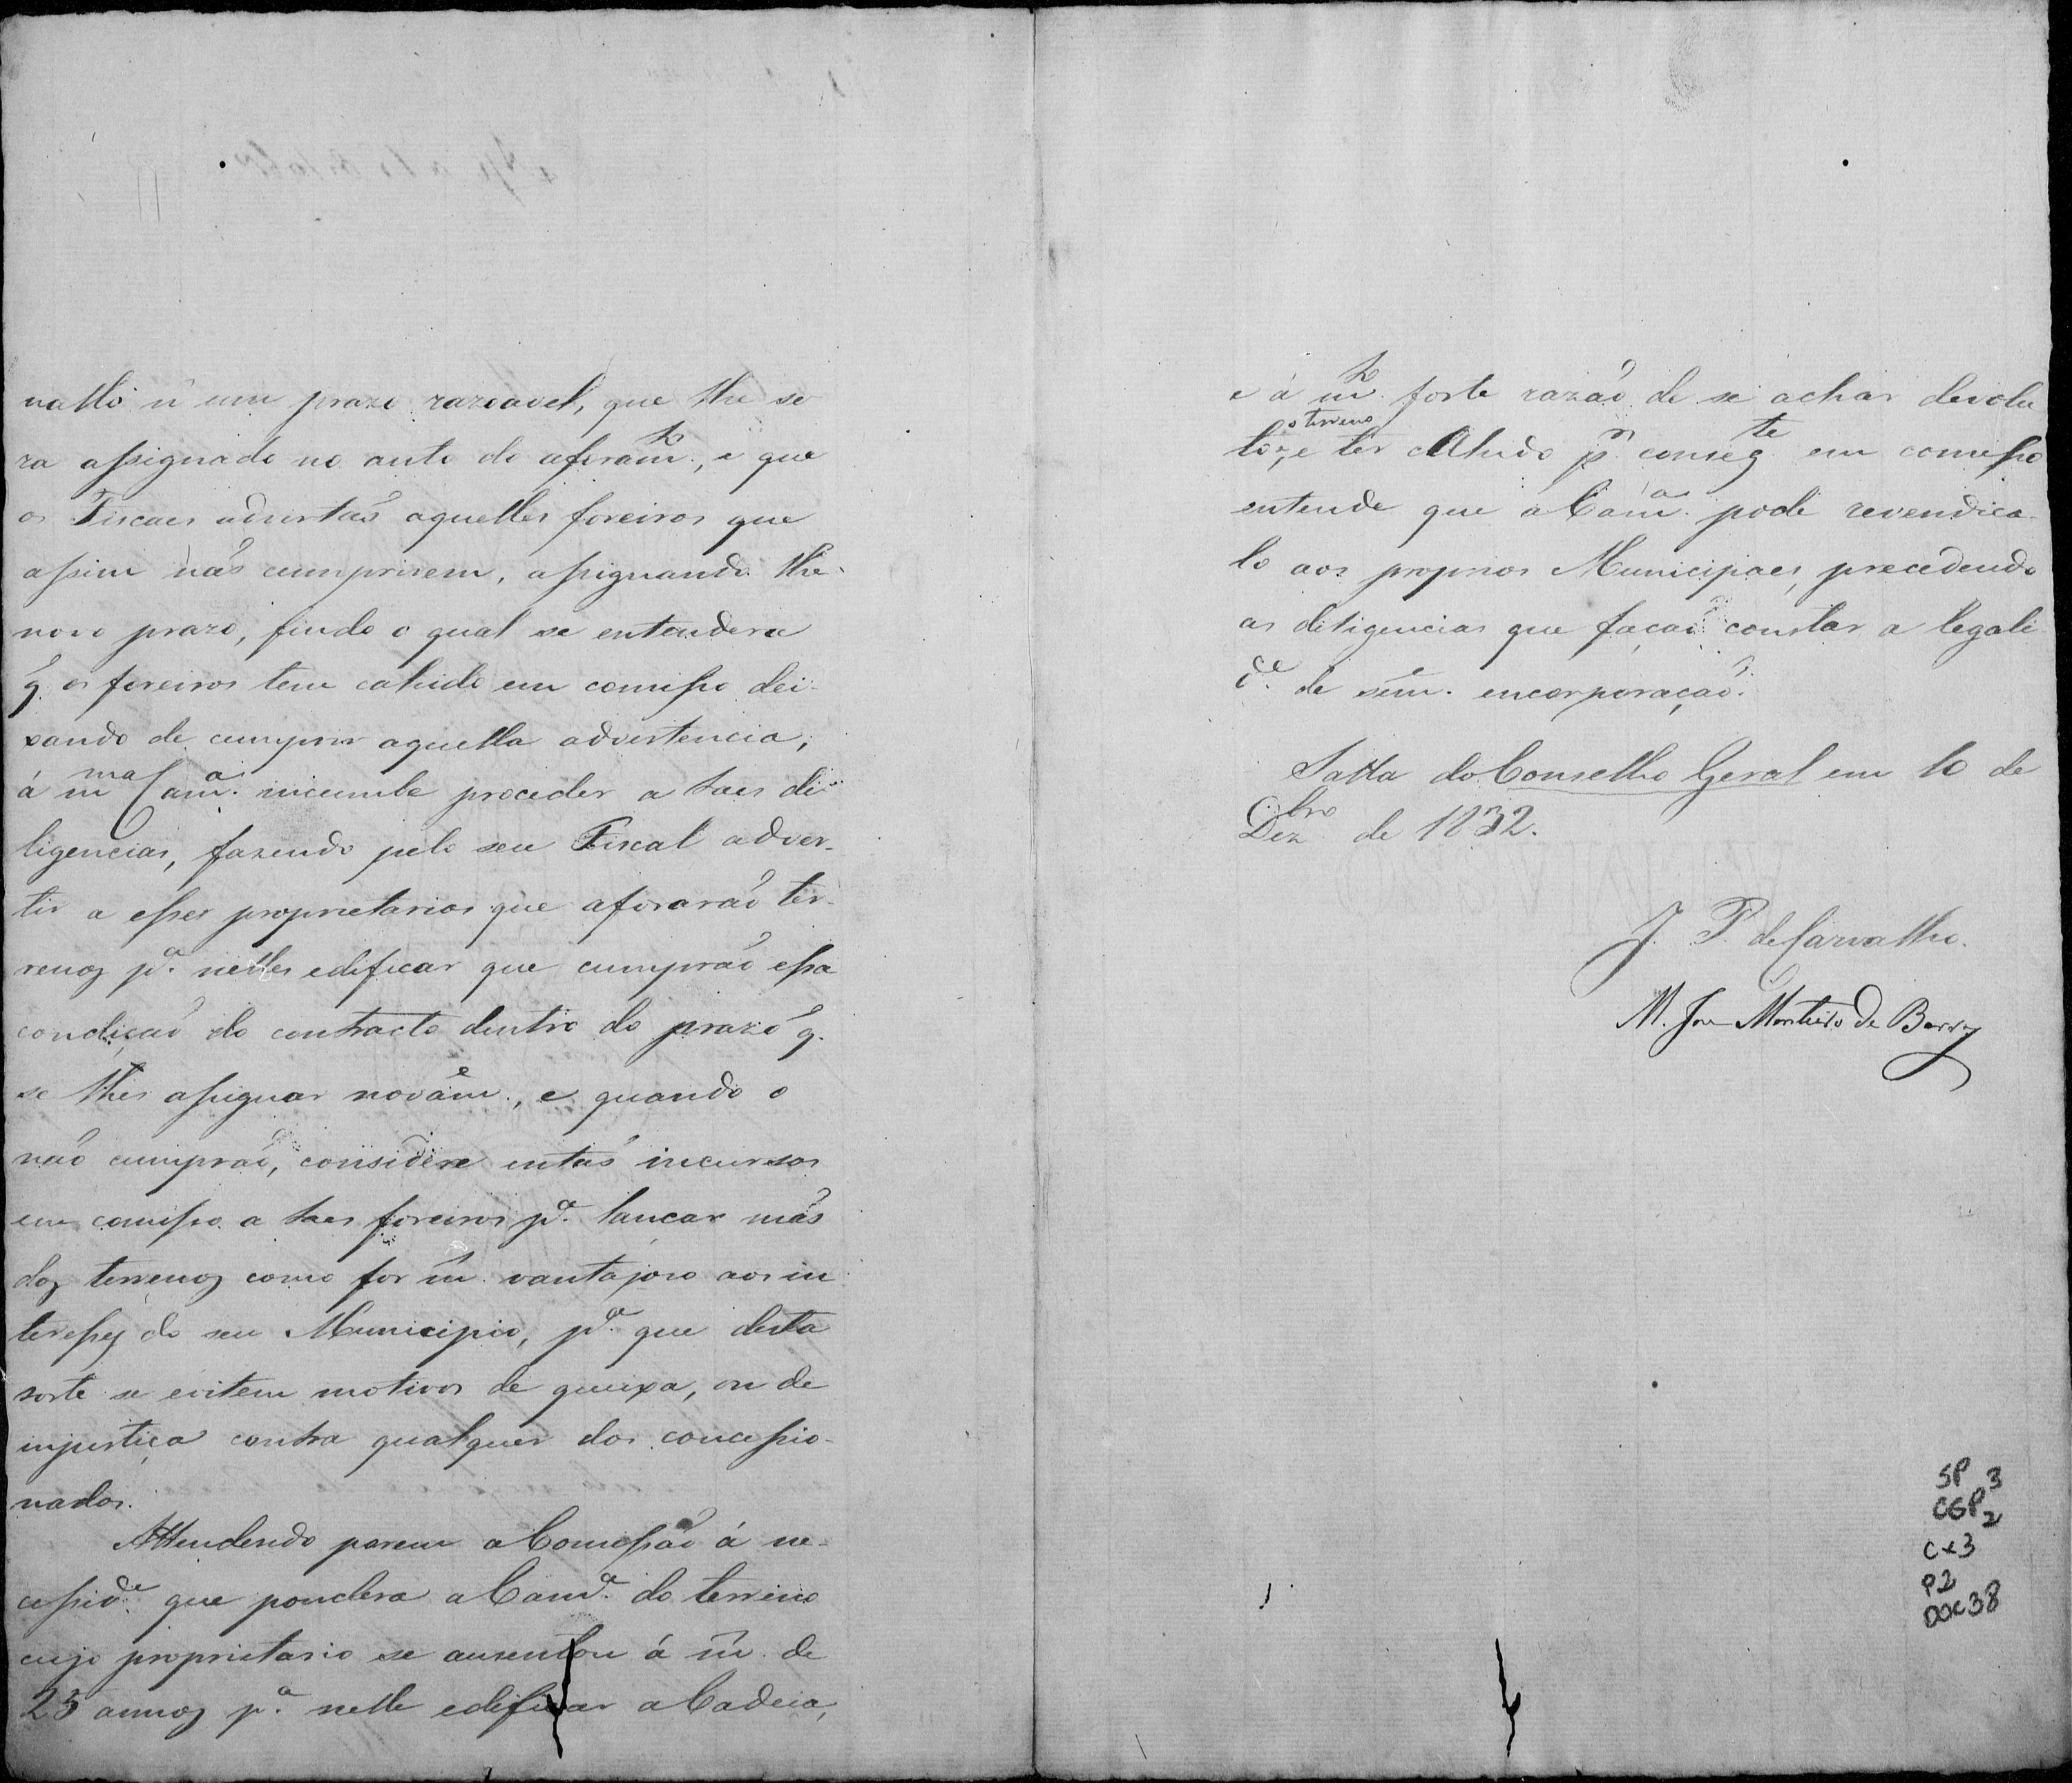 nallo n'um prazo razoavel, que lhe se
ra assignado no auto do aforam.to, e que
os Fiscaes advirtaõ aquelles foreiros que
assim naõ cumprirem, assignando lhe
novo prazo, findo o qual se entenderá
q̃ os foreiros tem cahido em comisso dei-
xando de cumprir aquella advertencia,
á m.ma Cam.a incumbe proceder a taes di
ligencias, fazendo pelo seu Fiscal adver-
tir a esses proprietarios que aforaraõ ter-
renos p.a nelles edificar que cumpraõ essa
condiçaõ do contracto dentro do prazo q.
se lhes assignar novam.e, e quando o
naõ cumpraõ, considere entaõ incursos
em comisso a taes foreiros p.a lançar maõ
dos terrenos como for m̃. vantajoso aos in
teresses do seu Municipio, p.a que desta
sorte se evitem motivos de queixa, ou de
injustiça contra qualquer dos concessio-
nados.
Attendendo porem a Comessaõ á ne-
cessid.e que pondera a Cam.a do terreno
cujo proprietario se ausentou á m̃. de
25 annos p.a nelle edificar a Cadeia,
e á m.to forte razaõ de se achar devolu
o terreno
to, e ter cahido p.r conseg.te em comisso
entende que a Cam.a pode revendica-
lo aos proprios Municipaes, precedendo
as diligencias que façaõ constar a legali
d.e de sem.e encorporaçaõ.
Salla do Conselho Geral em 10 de
Dez.bro de 1832.
J. P. de Carvalho.
M. Joze Monteiro de Barros
SP 3
CGP2
cx3
P2
DOC38